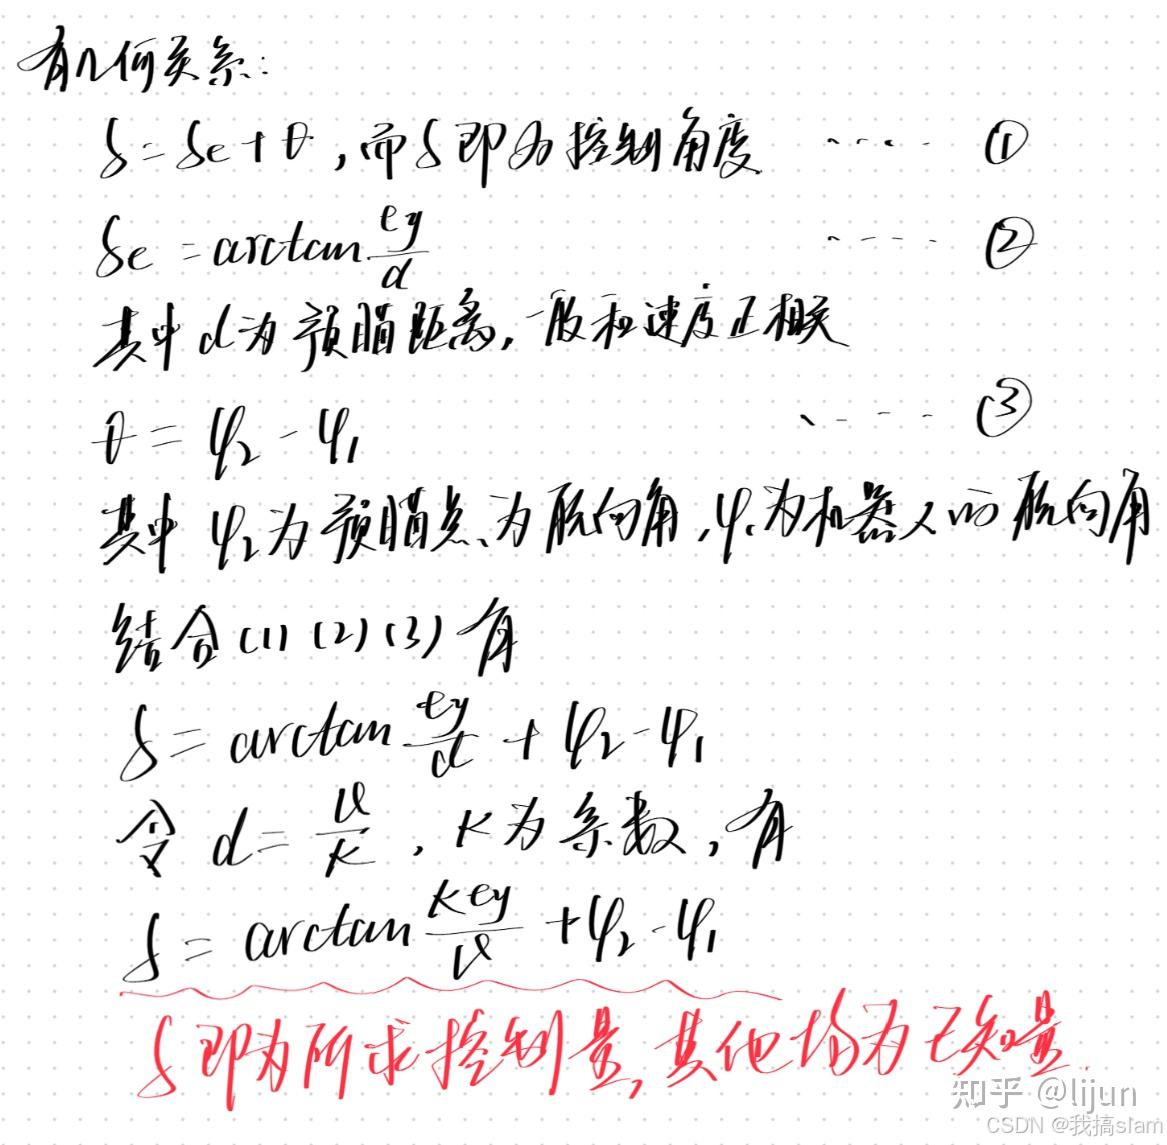 有几何关系:
δ=δe+θ,而δ即为控制角度 ····· ①
δe=arctan ey/d ····· ②
其中d为预瞄距离,一般和速度正相关
θ=ψ₂-ψ₁ ····· ③
其中ψ₂为预瞄点为航向角,ψ₁为机器人的航向角
结合(1)(2)(3)有
δ=arctan ey/d+ψ₂-ψ₁
令d=v/k,k为系数,有
δ=arctan key/v+ψ₂-ψ₁
δ即为所求控制量,其他均为已知量.
知乎 @lijun
CSDN @我搞slam